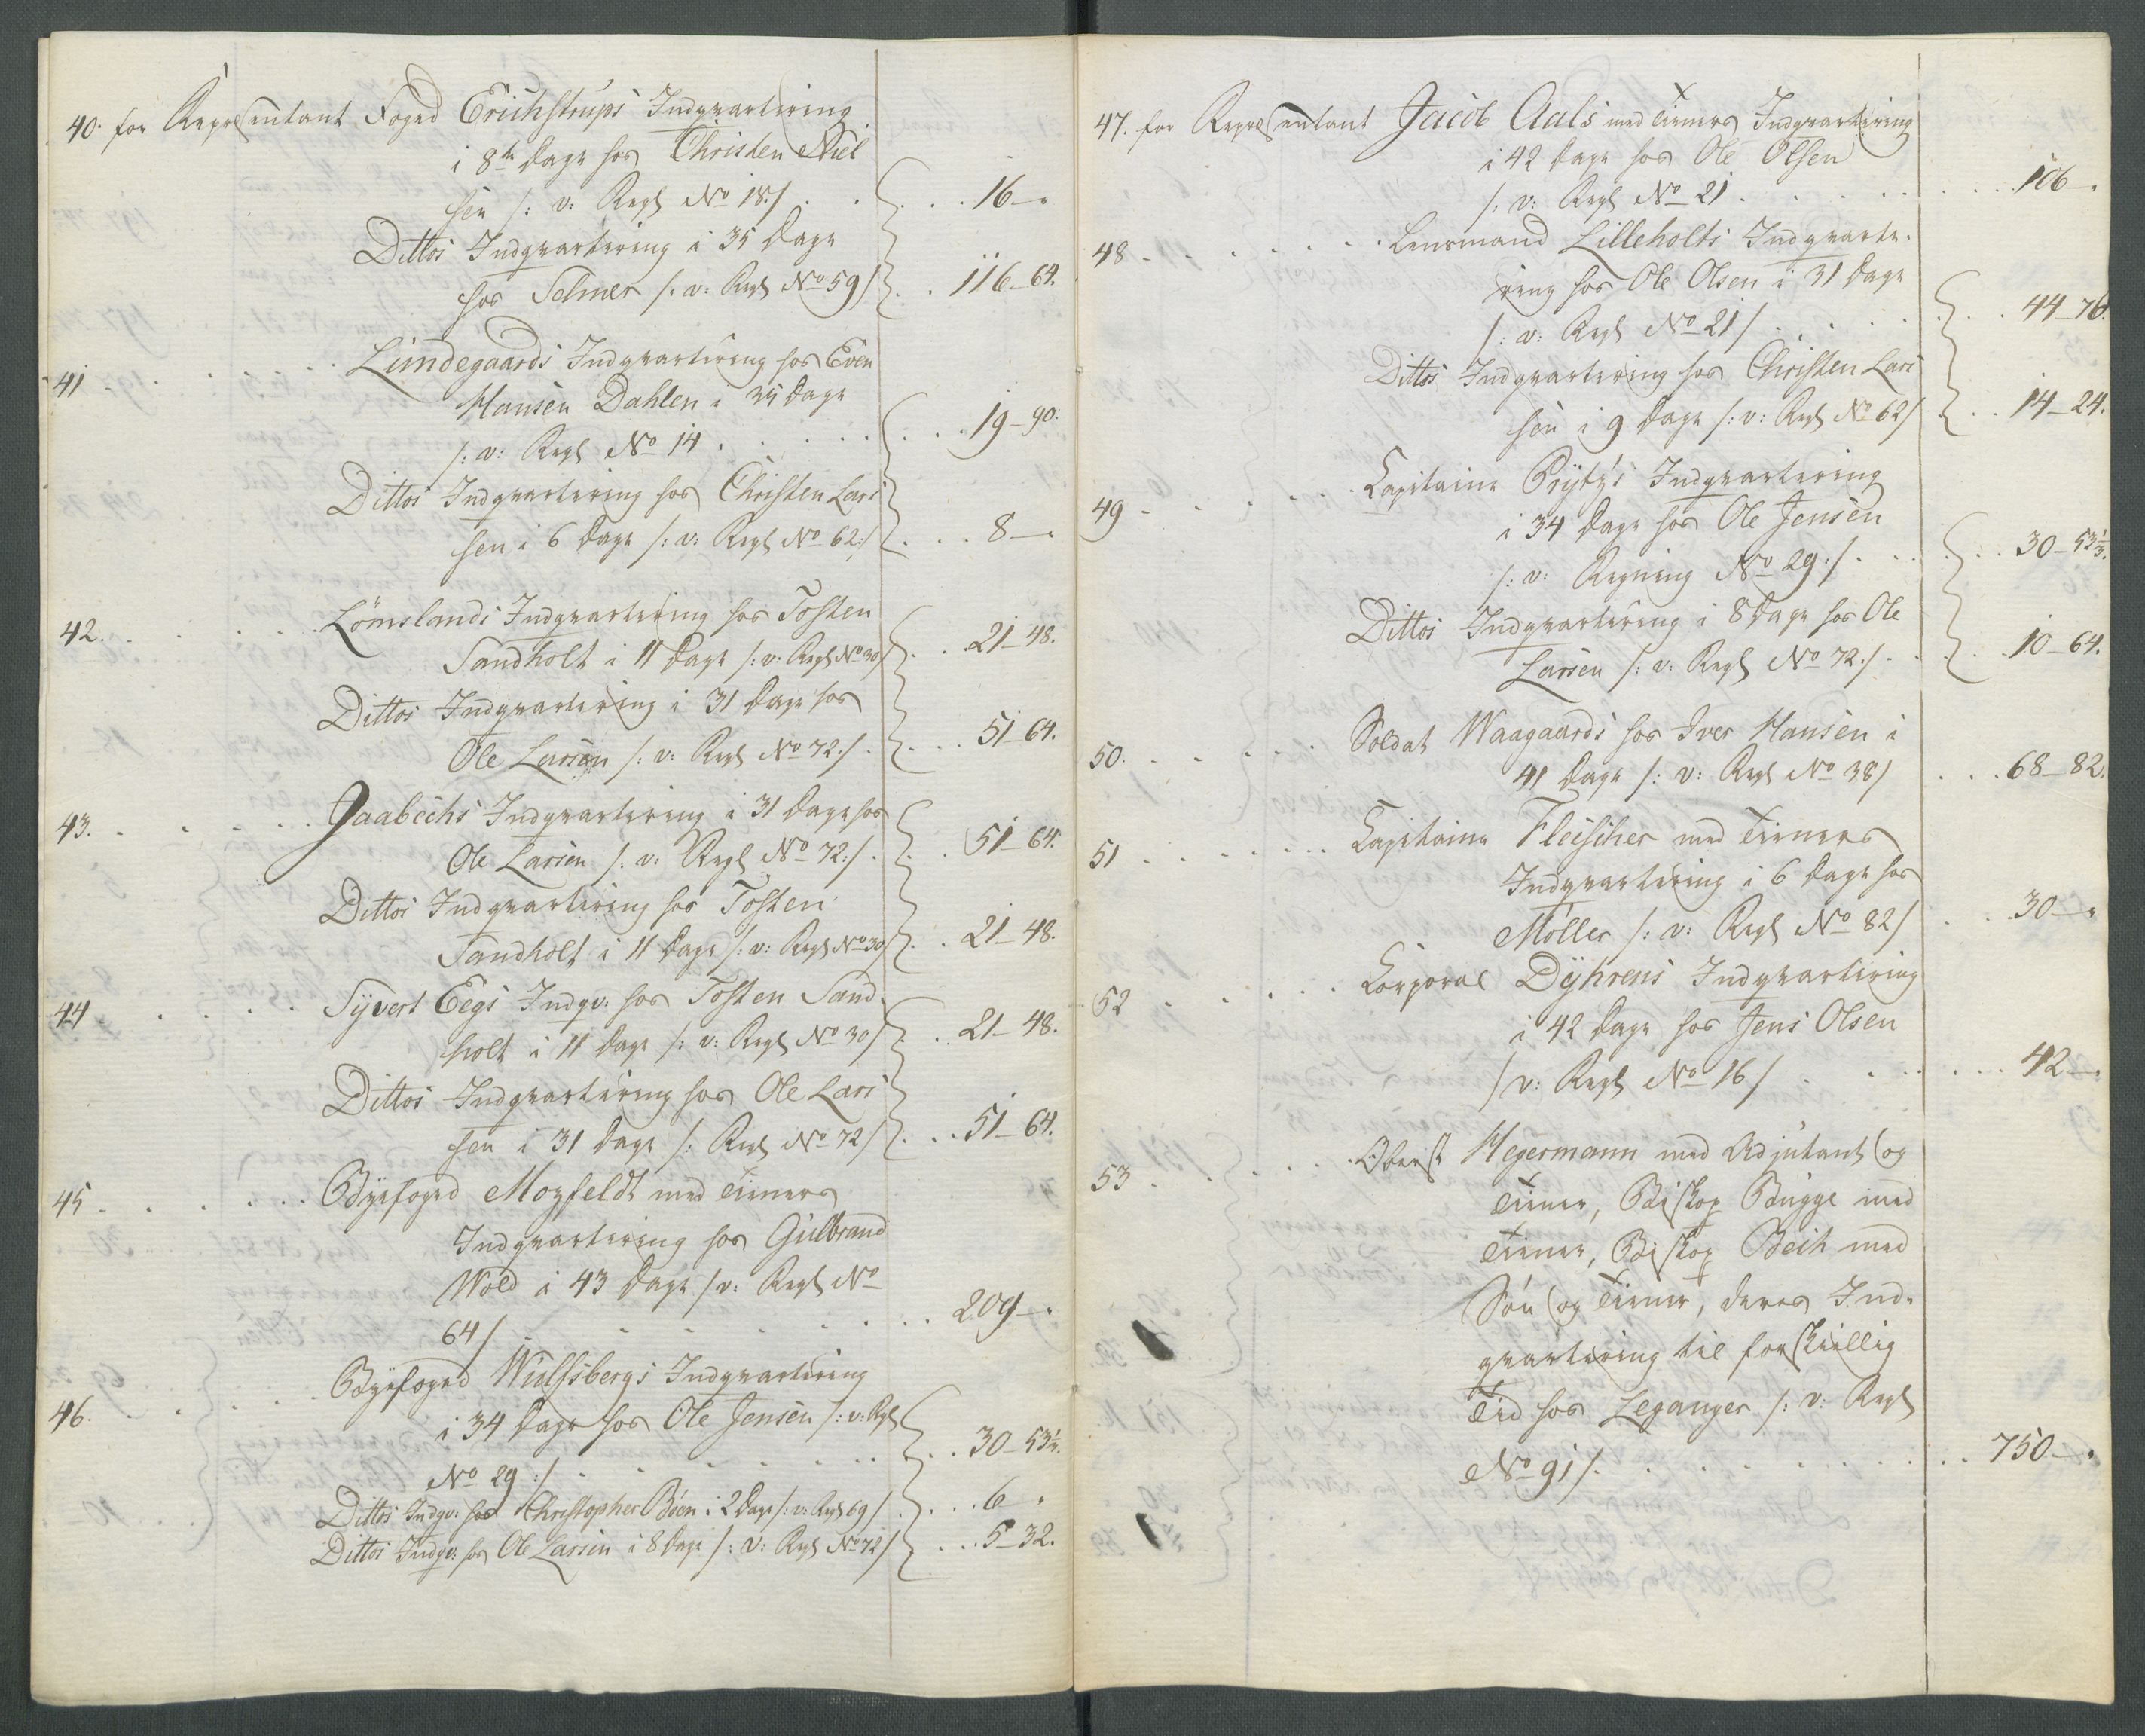 40. for Repræsentant Foged Erichstrups Indqvartering
i 8te Dage hos Christen Niel
sen /: v: Regl No 18:/ . . . . . 16 - "
Dittos Indqvartering i 35 Dage
hos Selmer /: v: Regl No 59/ . . 116 - 64.
41 . . . . . Lundegaards Indqvartering hos Even
Hansen Dahlen i 35 Dage
/: v: Regl No 14 . . . . . 19 - 90.
Dittos Indqvartering hos Christen Lar
sen i 6 Dage /: v: Regl No 62:/ . . . 8 - "
42. . . . . Lömslands Indqvartering hos Tosten
Sandholt i 11 Dage /: v: Regl No 30/ . . 21 - 48.
Dittos Indqvartering i 31 Dage hos
Ole Larsen /: v: Regl No 72:/ . . . . 51 - 64.
43. . . . . Jaabechs Indqvartering i 31 Dage hos
Ole Larsen /: v: Regl No 72:/ . . . 51 - 64.
Dittos Indqvartering hos Tosten
Sandholt i 11 Dage /: v: Regl No 30/ . . 21 - 48.
44 . . . . Syvert Eegs Indqv: hos Tosten Sand
holt i 11 Dage /: v: Regl No 30/ . . . 21 - 48.
Dittos Indqvartering hos Ole Lar
sen i 31 Dage /: Regl No 72/ . . . 51 - 64.
45 . . . . . Byefoged Mozfeldt med Tieners
Indqvartering hos Gulbrand
Wold i 43 Dage /v: Regl No
64/ . . . . . . . . 209 - "
46. . . . . Byefoged Wulfsbergs Indqvartering
i 34 Dage hos Ole Jensen /: v: Regl
No 29 :/ . . . . . . . 30 - 53 1/2.
Dittos Indqv: hos Christopher Böen i 2 Dage /: v: Regl 69/ . . . 6 "
Dittos Indqv: hos Ole Larsen i 8 Dage /: v: Regl No 72/ . . . 5 - 32.
47. for Repræsentant Jacob Aals med Tieners Indqvartering
i 42 Dage hos Ole Olsen
/: v: Regl No 21 . . . . . . . . 106 - "
48 . . . . . Lensmand Lilleholts Indqvarte-
ring hos Ole Olsen i 31 Dage
/: v: Regl No 21/ . . . . . . 44 - 76.
Dittos Indqvartering hos Christen Lar
sen i 9 Dage /: v: Regl No 62/ . . 14 - 24.
49 . . . . . Capitaine Prytz's Indqvartering
i 34 Dage hos Ole Jensen
/: v: Regning No 29:/ . . . . . 30 - 53 1/3.
Dittos Indqvartering i 8 Dage hos Ole
Larsen /: v: Regl No 72:/ . . . . 10 - 64.
50. . . . . Soldat Waagaards hos Iver Hansen i
41 Dage /: v: Regl No 38/ . . . 68 - 82.
51 . . . . . Capitaine Fleischer med Tieners
Indqvartering i 6 Dage hos
Möller /: v: Regl No 82/ . . . 30 - "
52 . . . . . Corporal Dyhrens Indqvartering
i 42 Dage hos Jens Olsen
/ v: Regl No 16/ . . . . . . 42 - "
53 . . . . . Oberst Hegermann med Adjutant og
Tiener, Biskop Bugge med
Tiener, Biskop Bech med
Sön og Tiener, deres Ind-
qvartering til forskiellig
Tid hos Leganger /: v: Regl
No 91/. . . . . . . . . 750 - "